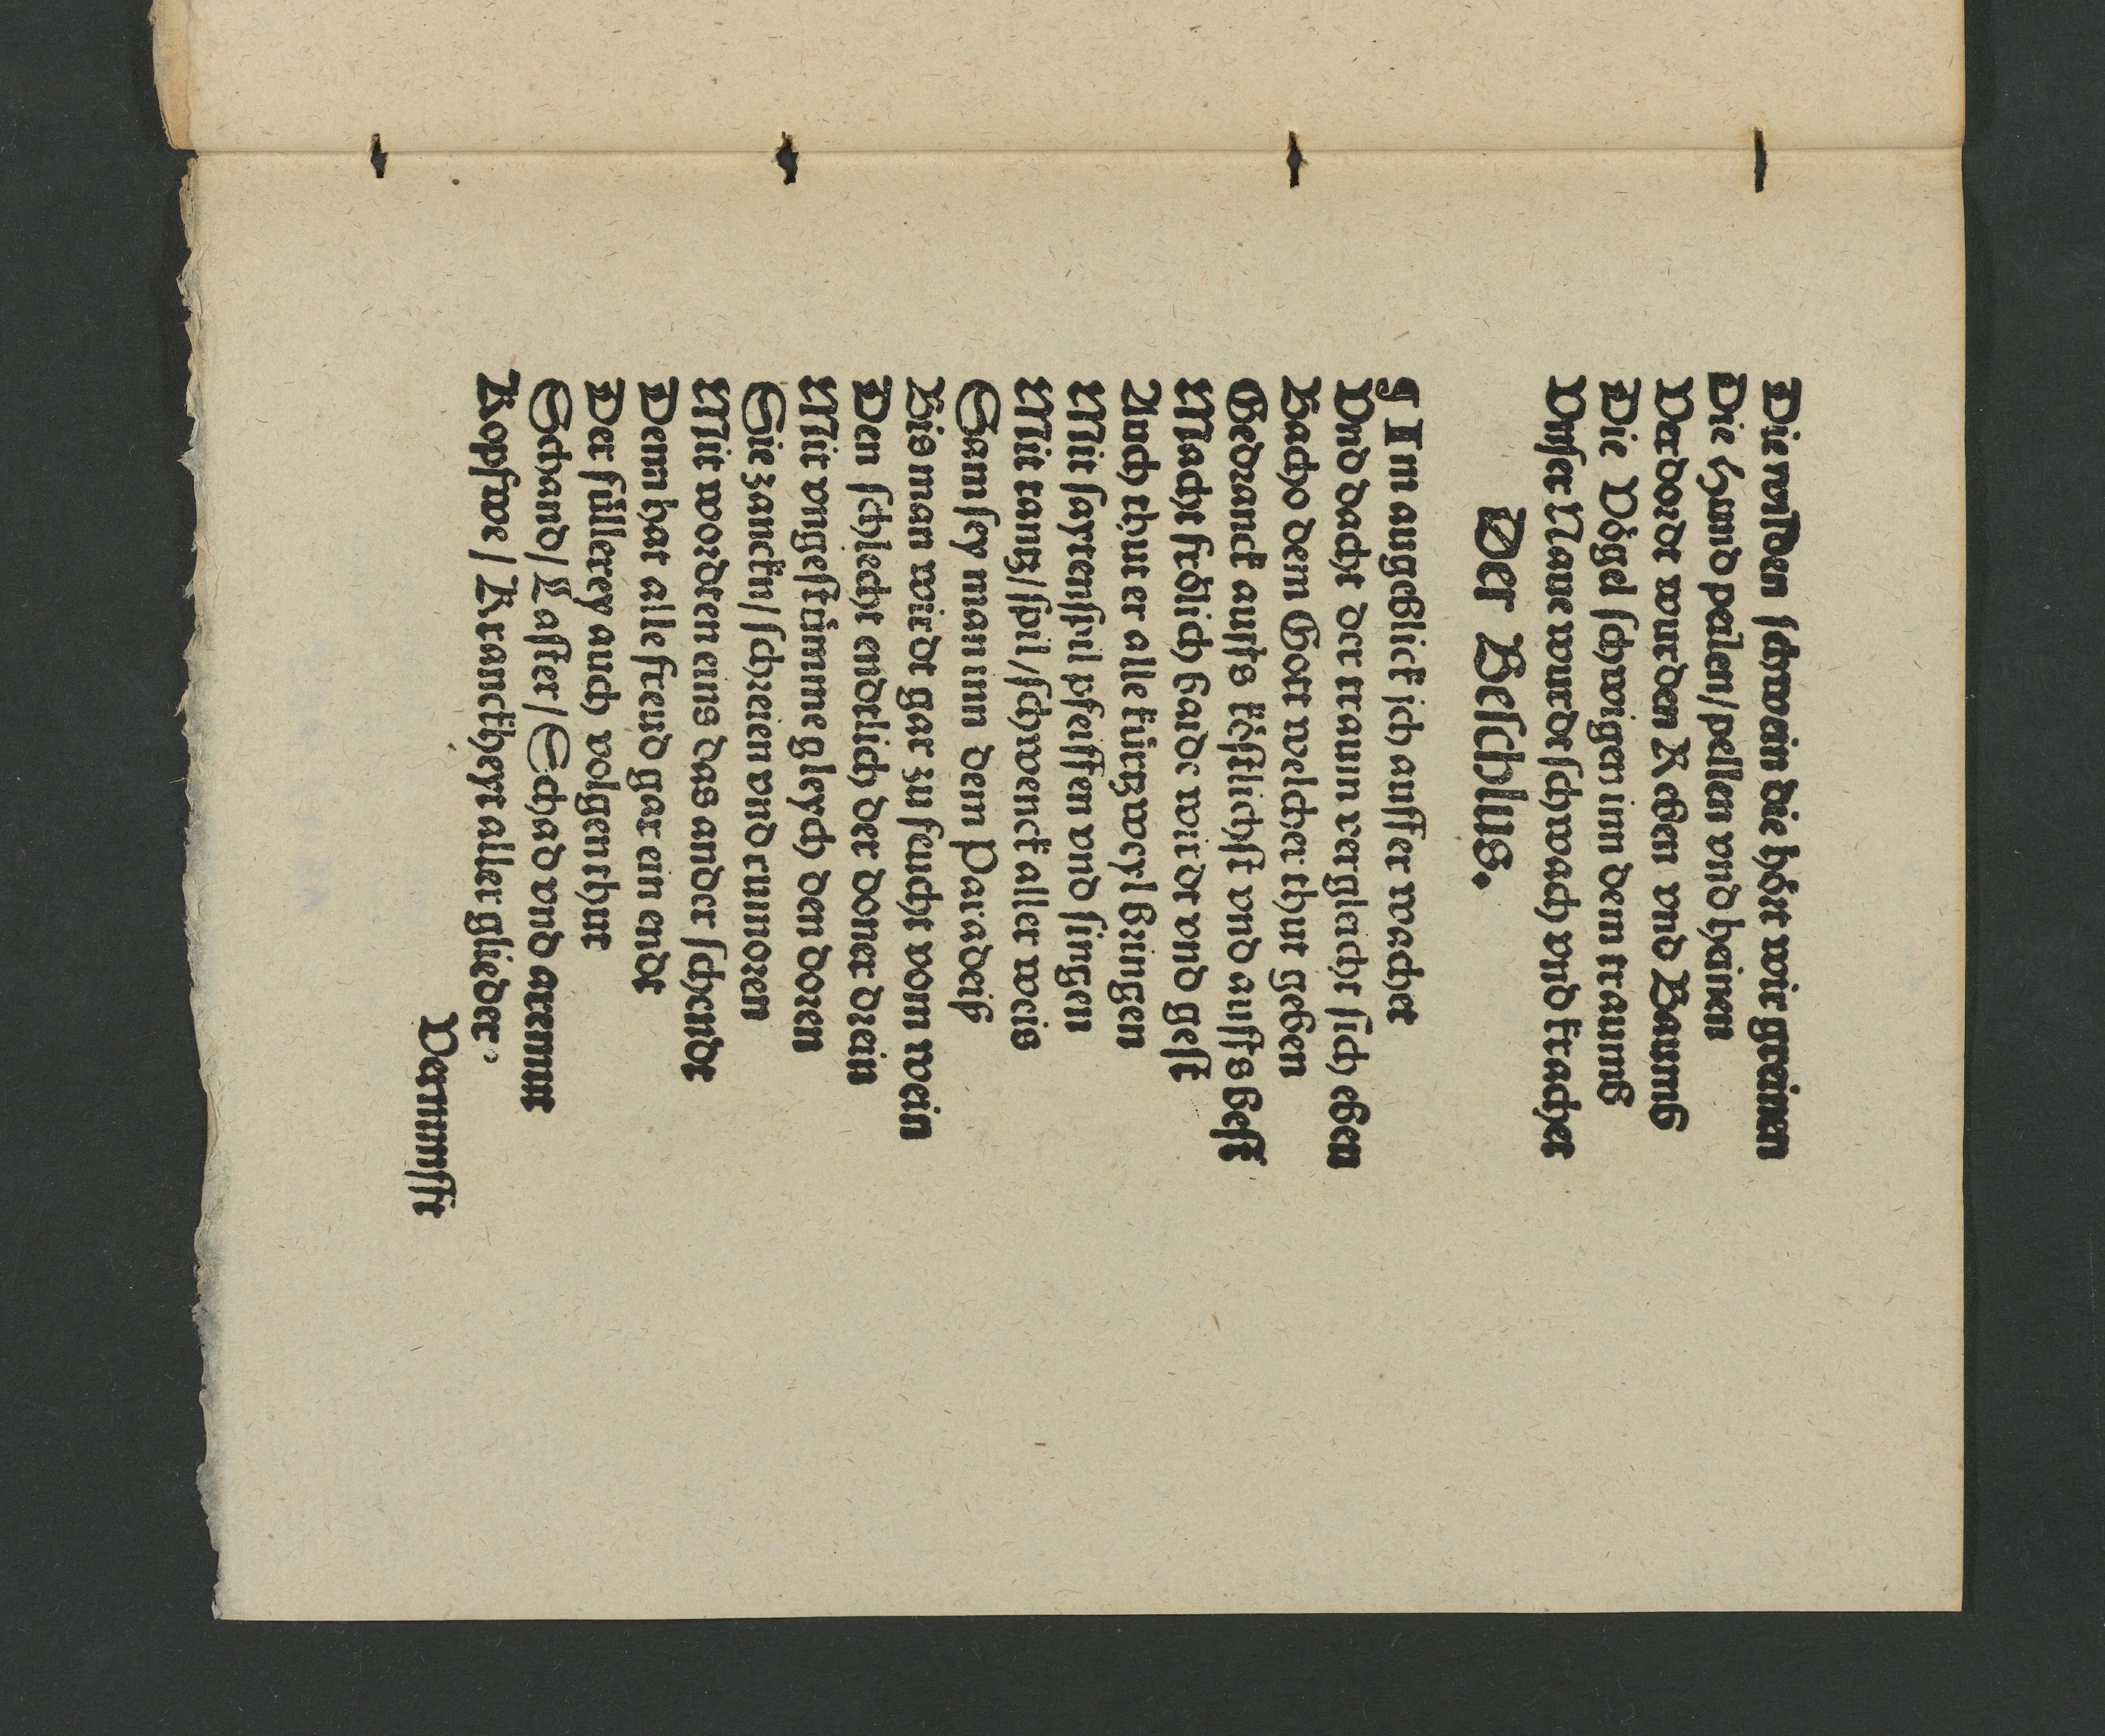 Die wilden ſchwein die hört wir greinen
Die Hund peilen/pellen vnd heinen
Verdordt wurden Reben vnd Baumß
Die Vögel ſchwigen inn dem traumß
Vnſer Naue wurdt ſchwach vnd kracht
Der Beſchlus.
¶ In augeblick ich auffer wachet
Vnd dacht der traum vergleicht ſich eben
Bacho dem Gott welcher thut geben
Gedranck auffs köſtlichſt vnd auffs beſt
Macht frölich baide wirdt vnd geſt
Auch thut er alle kürtzweyl bringen
Mit ſaytenſpil pfeiffen vnd ſingen
Mit tantz/ſpil/ſchwenck aller weis
Sam ſey man inn dem Paradeiß
Bis man wirdt gar zu feucht vom wein
Den ſchlecht endtlich der doner drein
Mit vngeſtümme gleych den doren
Sie zancken/ſchreien vnd rumoren
Mit worten eins das ander ſchendt
Denn hat alle freud gar ein endt
Der füllerey auch volgen thut
Schand/Laſter/Schad vnd aremut
Kopfwe/Kranckheyt aller glieder.
Vernunfft